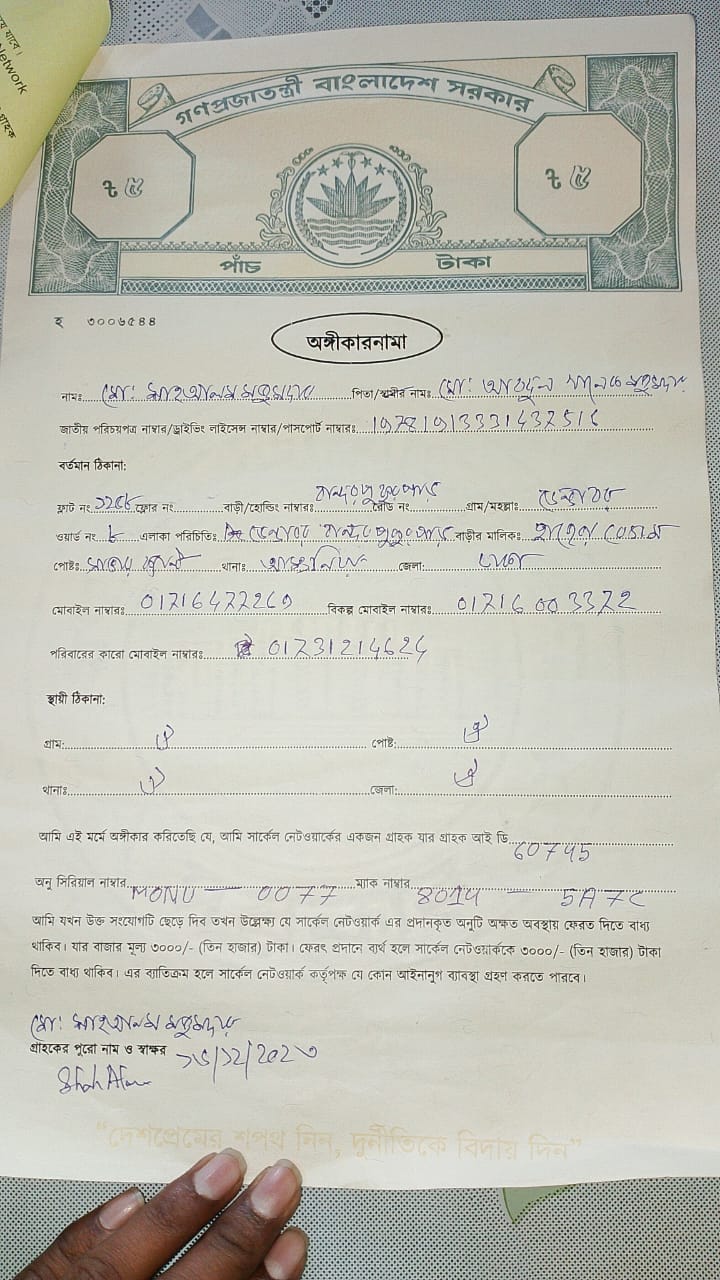 Network
গ্রাহক
গণপ্রজাতন্ত্রী বাংলাদেশ সরকার
৳ ৫ ৳ ৫
পাঁচ টাকা
হ ৩০০৬৫৪৪
অঙ্গীকারনামা
নামঃ মো: শাহআলম মজুমদার পিতা/স্বামীর নামঃ মো: আবদুল মালেক মজুমদার
জাতীয় পরিচয়পত্র নাম্বার/ড্রাইভিং লাইসেন্স নাম্বার/পাসপোর্ট নাম্বারঃ
বর্তমান ঠিকানা:
ফ্লাট নং ফ্লোর নং বাড়ী/হোল্ডিং নাম্বারঃ রোড নং গ্রাম/মহল্লাঃ
ওয়ার্ড নং ৮ এলাকা পরিচিতিঃ বাড়ীর মালিকঃ
পোষ্টঃ থানাঃ আশুলিয়া জেলা: ঢাকা
মোবাইল নাম্বারঃ 01716477269 বিকল্প মোবাইল নাম্বারঃ 01716003372
পরিবারের কারো মোবাইল নাম্বারঃ 01731214624
স্থায়ী ঠিকানা:
গ্রাম: ঐ পোষ্ট: ঐ
থানাঃ ঐ জেলা: ঐ
আমি এই মর্মে অঙ্গীকার করিতেছি যে, আমি সার্কেল নেটওয়ার্কের একজন গ্রাহক যার গ্রাহক আই ডি 60745
অনু সিরিয়াল নাম্বার MONU — 0077 ম্যাক নাম্বার 8014 — 5A7C
আমি যখন উক্ত সংযোগটি ছেড়ে দিব তখন উল্লেক্ষ্য যে সার্কেল নেটওয়ার্ক এর প্রদানকৃত অনুটি অক্ষত অবস্থায় ফেরত দিতে বাধ্য
থাকিব। যার বাজার মূল্য ৩০০০/- (তিন হাজার) টাকা। ফেরৎ প্রদানে ব্যর্থ হলে সার্কেল নেটওয়ার্ককে ৩০০০/- (তিন হাজার) টাকা
দিতে বাধ্য থাকিব। এর ব্যাতিক্রম হলে সার্কেল নেটওয়ার্ক কর্তৃপক্ষ যে কোন আইনানুগ ব্যাবস্থা গ্রহণ করতে পারবে।
মো: শাহআলম মজুমদার
গ্রাহকের পুরো নাম ও স্বাক্ষর
Shah Alam
"দেশপ্রেমের শপথ নিন, দুর্নীতিকে বিদায় দিন"